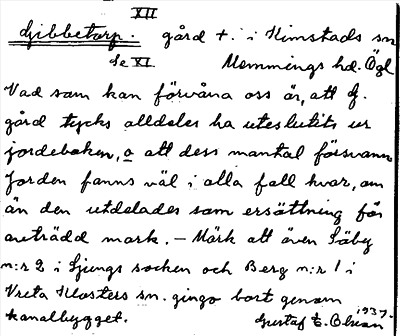 XII
Gibbetorp. gård t. i Kimstads sn
Se XI. Memmings hd. Ögl
Vad som kan förvåna oss är, att G.
gård tycks alldeles ha uteslutits ur
jordeboken, o att dess mantal försvann
Jorden fanns väl i alla fall kvar, om
än den utdelades som ersättning för
avträdd mark. – Märk att även Säby
n:r 2 i Ljungs socken och Berg n:r 1 i
Vreta Klosters sn. gingo bort genom
kanalbygget. Gustaf E. Olsson 1937.